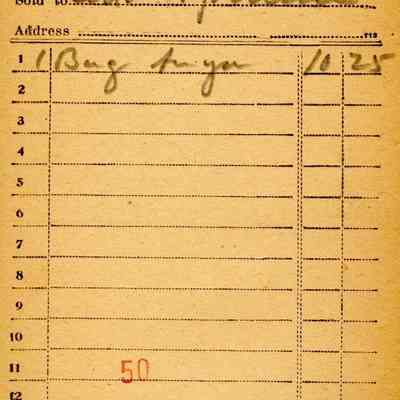 Sold to
Address
1 1 Bag 10 25
2
3
4
5
6
7
8
9
10
11 50
12